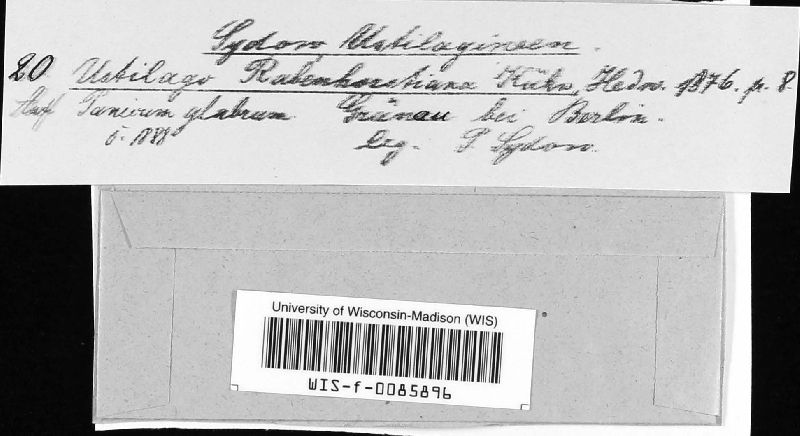 Sydow Ustilagineen.
20 Ustilago Rabenhorstiana Kühn, Hedw. 1876. p. 8.
Auf Panicum glabrum. Grünau bei Berlin.
5. 1888 leg. P. Sydow.
University of Wisconsin-Madison (WIS)
WIS-f-0085896